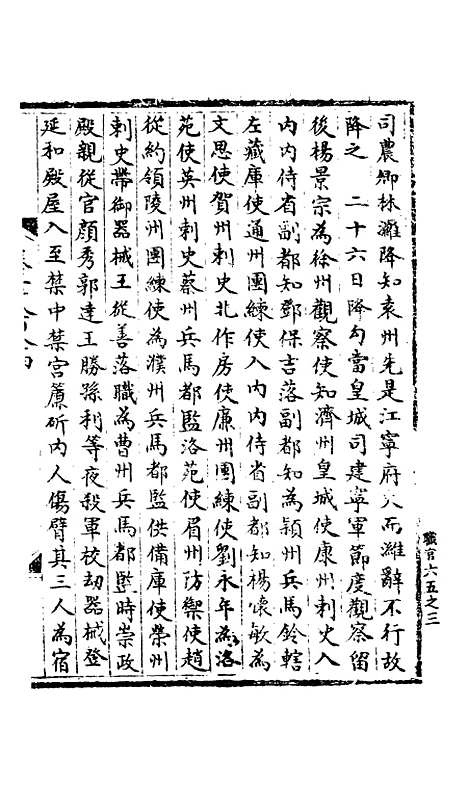 司農卿林濰降知袁州先是江寧府火而濰辭不行故
降之　二十六日降勾當皇城司建寧軍節度觀察留
後楊景宗為徐州觀察使知濟州皇城使康州刺史入
內內侍省副都知鄧保吉落副都知為潁州兵馬鈐轄
左藏庫使通州團練使入內內侍省副都知楊懷敏為
文思使賀州刺史北作房使廉州團練使劉永年為洛
苑使英州刺史蔡州兵馬都監洛苑使眉州防禦使趙
從約領陵州團練使為濮州兵馬都監供備庫使榮州
刺史帶御器械王從善落職為曹州兵馬都監時崇政
殿親從官顏秀郭逵王勝孫利等夜殺軍校劫器械登
延和殿屋入至禁中禁宮簾斫內人傷臂其三人為宿
職官六五之三